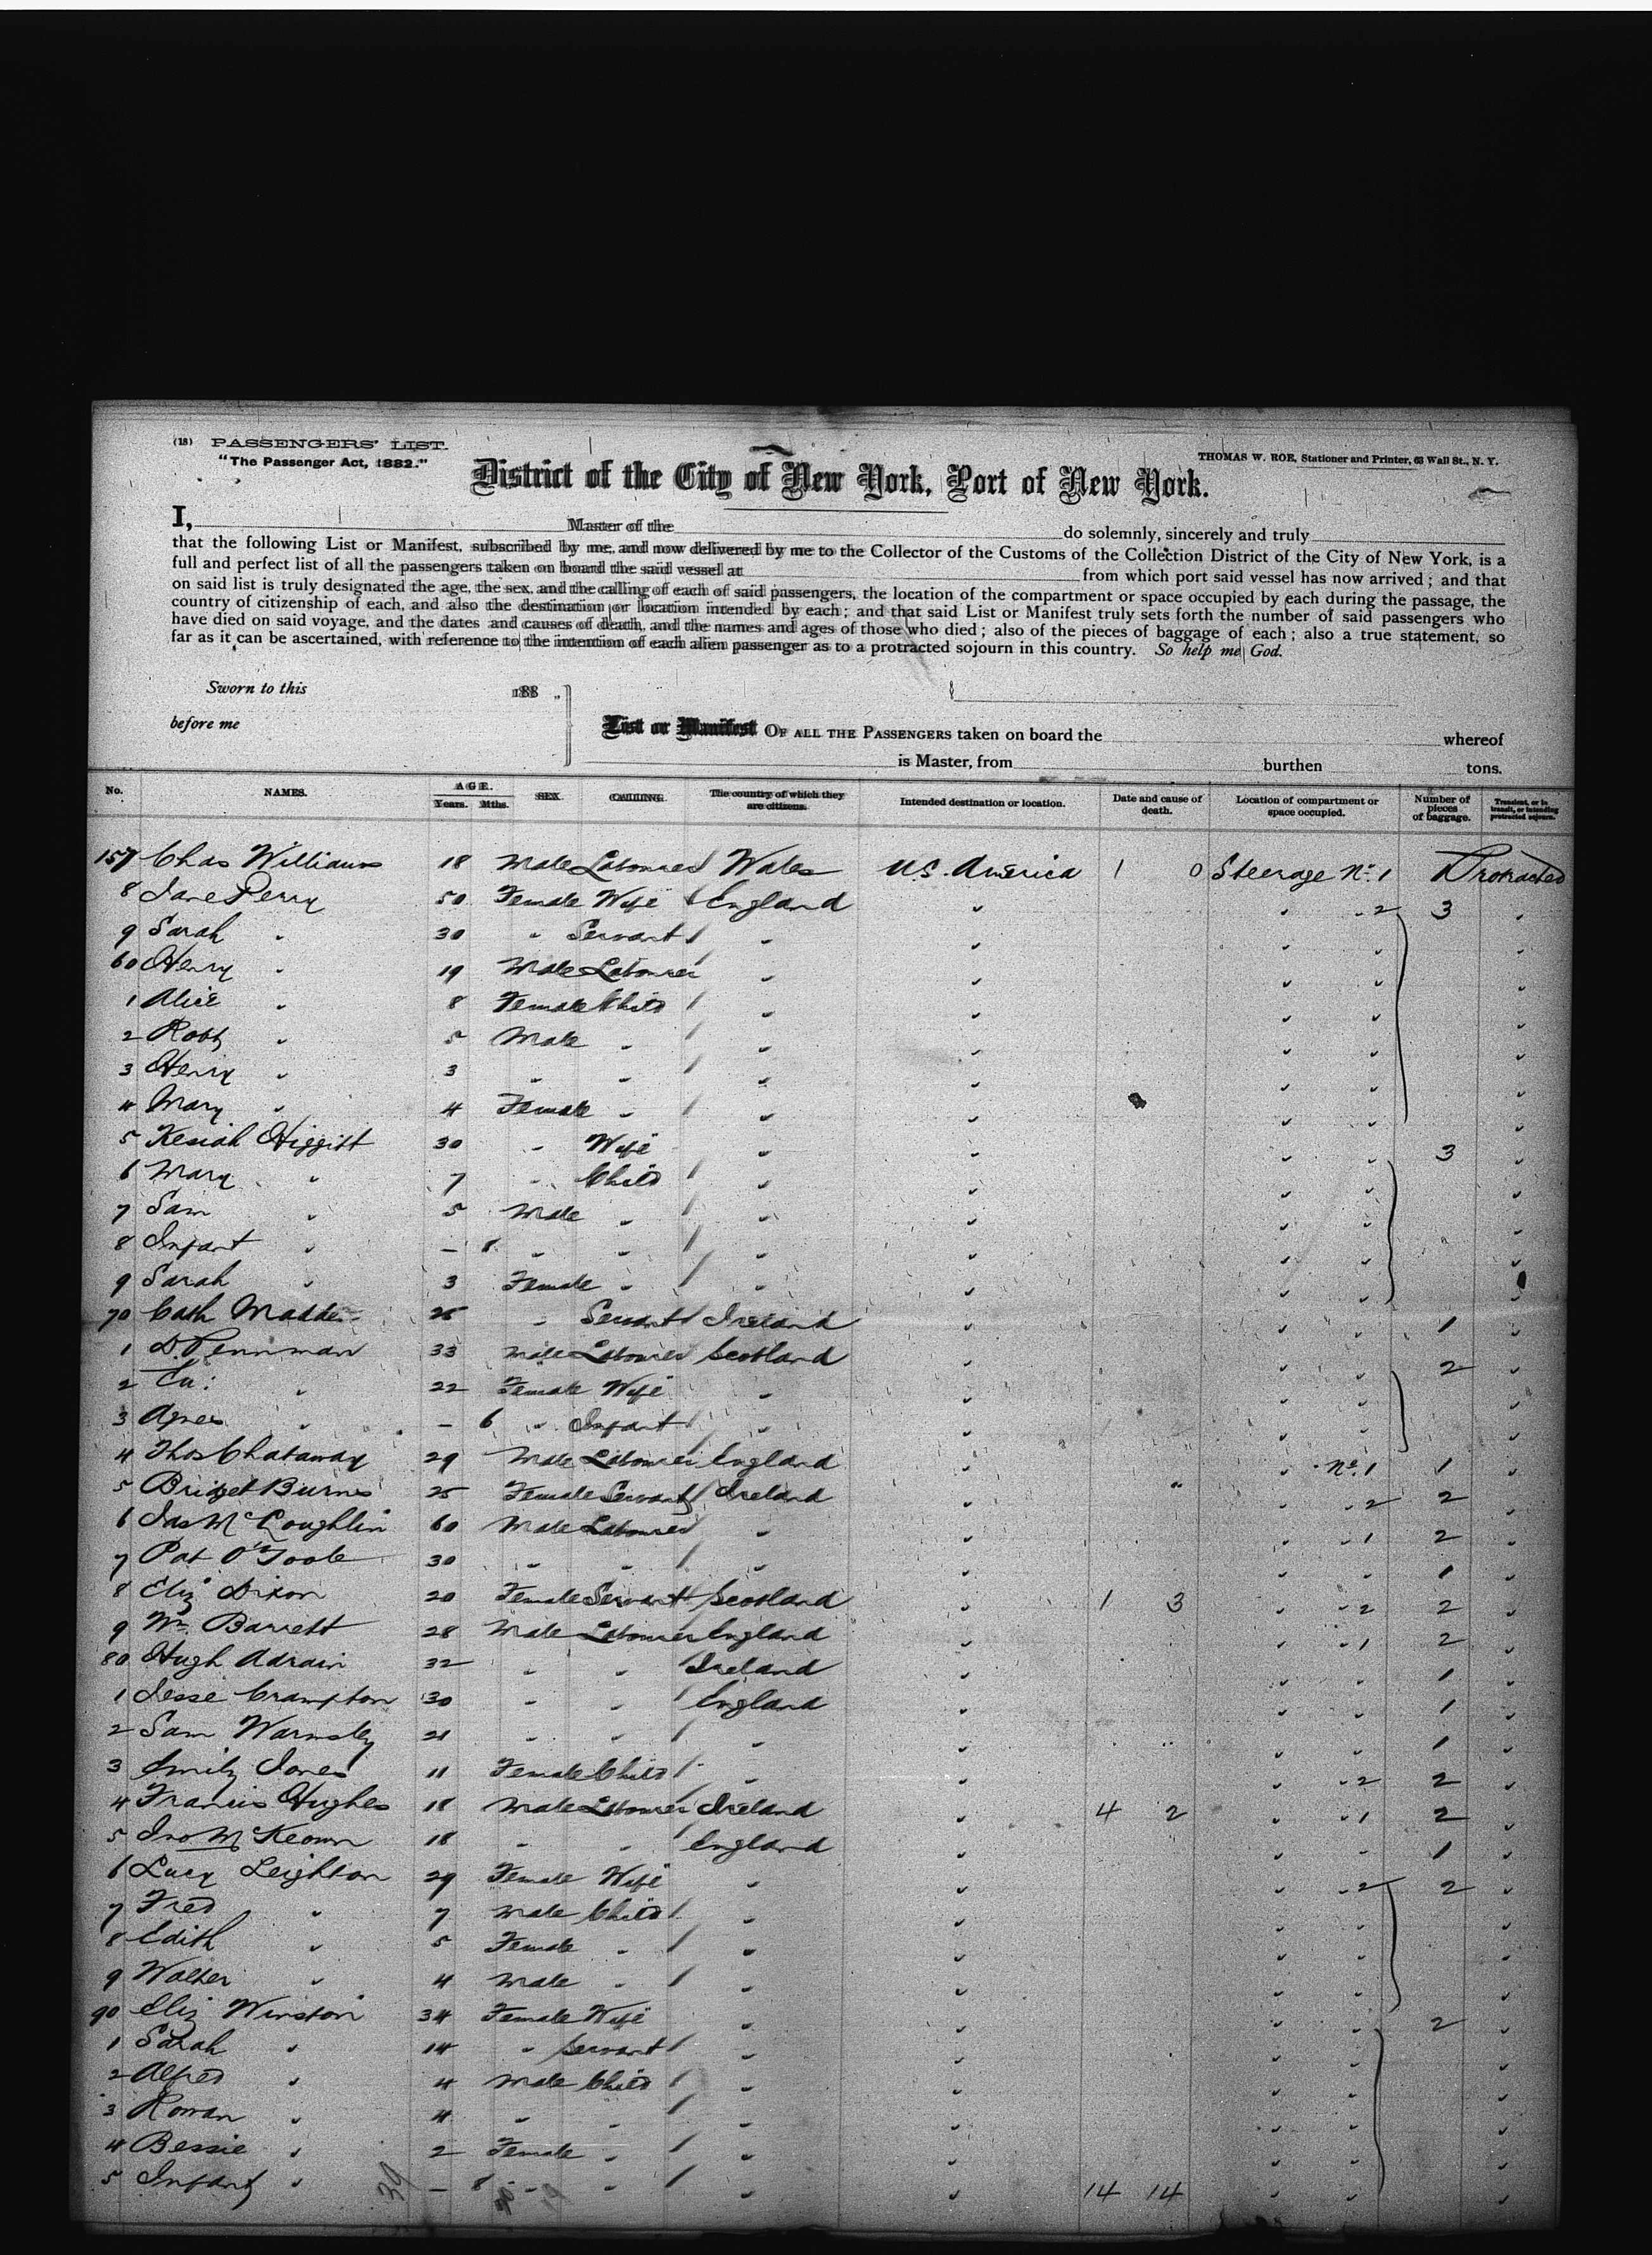 (18) PASSENGERS' LIST.
"The Passenger Act, 1882."
THOMAS W. ROE, Stationer and Printer, 63 Wall St., N. Y.
District of the City of New York, Port of New York.
I, Master of the do solemnly, sincerely and truly
that the following List or Manifest, subscribed by me, and now delivered by me to the Collector of the Customs of the Collection District of the City of New York, is a
full and perfect list of all the passengers taken on board the said vessel at from which port said vessel has now arrived; and that
on said list is truly designated the age, the sex, and the calling of each of said passengers, the location of the compartment or space occupied by each during the passage, the
country of citizenship of each, and also the destination or location intended by each; and that said List or Manifest truly sets forth the number of said passengers who
have died on said voyage, and the dates and causes of death, and the names and ages of those who died; also of the pieces of baggage of each; also a true statement, so
far as it can be ascertained, with reference to the intention of each alien passenger as to a protracted sojourn in this country. So help me God.
Sworn to this 188
before me
List or Manifest OF ALL THE PASSENGERS taken on board the whereof
is Master, from burthen tons.
No. NAMES. AGE. Years. Mths. SEX. CALLING. The country of which they are citizens. Intended destination or location. Date and cause of death. Location of compartment or space occupied. Number of pieces of baggage. Transient, or in transit, or intending protracted sojourn.
157 Chas Williams 18 Male Labourer Wales U.S. America 1 0 Steerage No. 1 1 Protracted
8 Jane Perry 50 Female Wife England " " " 2 3 "
9 Sarah " 30 " Servant " " " " "
60 Henry " 19 Male Labourer " " " " "
1 Alice " 8 Female Child " " " " "
2 Robt " 5 Male " " " " " "
3 Henry " 3 " " " " " " "
4 Mary " 4 Female " " " " " "
5 Kesiah Higgitt 30 " Wife " " " " 3 "
6 Mary " 7 " Child " " " " "
7 Sam " 5 Male " " " " " "
8 Infant " — 8 " " " " " " "
9 Sarah " 3 Female " " " " " "
70 Cath Madden 25 " Servant Ireland " " " 1 "
1 D. Pennman 33 Male Labourer Scotland " " " 2 "
2 " 22 Female Wife " " " " "
3 Agnes " — 6 " Infant " " " " "
4 Thos Chataway 29 Male Labourer England " " No. 1 1 "
5 Bridget Burns 25 Female Servant Ireland " " " 2 2 "
6 Jas McLoughlin 60 Male Labourer " " " " 1 2 "
7 Pat O'Toole 30 " " " " " " 1 "
8 Eliz Dixon 20 Female Servant Scotland " 1 3 " " 2 2 "
9 Wm Barrett 28 Male Labourer England " " " 1 2 "
80 Hugh Adrain 32 " " Ireland " " " 1 "
1 Jesse Crampton 30 " " England " " " 1 "
2 Sam Warmsley 21 " " " " " " 1 "
3 Emily Jones 11 Female Child " " " " 2 2 "
4 Francis Hughes 18 Male Labourer Ireland " 4 2 " " 1 2 "
5 Jno McKeown 18 " " England " " " 1 "
6 Lucy Leighton 29 Female Wife " " " " 2 2 "
7 Fred " 7 Male Child " " " " "
8 Edith " 5 Female " " " " " "
9 Walter " 4 Male " " " " " "
90 Eliz Winston 34 Female Wife " " " " 2 "
1 Sarah " 14 " Servant " " " " "
2 Alfred " 4 Male Child " " " " "
3 Rowan " 4 " " " " " " "
4 Bessie " 2 Female " " " " " "
5 Infant " — 8 " " " " 14 14 " " "
39